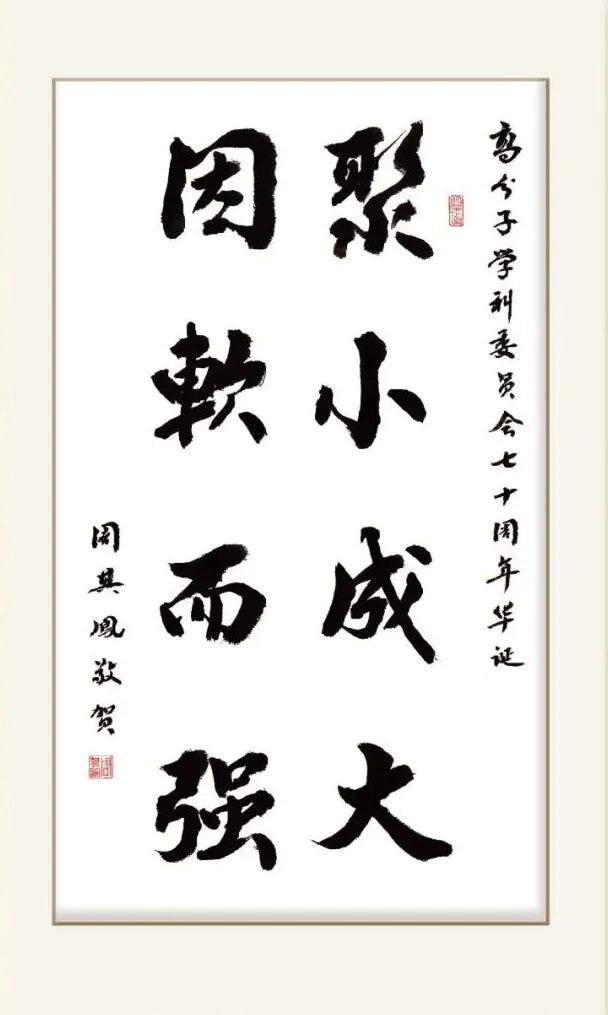 高分子学科委员会七十周年华诞
聚小成大
因軟而强
周其鳳敬贺